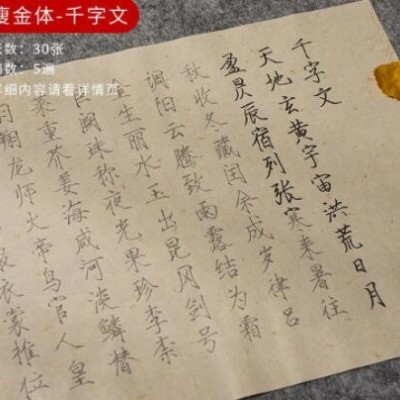 瘦金体-千字文
数：30张
数：5遍
细内容请看详情页
千字文
天地玄黄宇宙洪荒日月
盈昃辰宿列张寒来暑往
秋收冬藏闰余成岁律吕
调阳云腾致雨露结为霜
金生丽水玉出昆冈剑号
巨阙珠称夜光果珍李柰
菜重芥姜海咸河淡鳞潜
翔龙师火帝鸟官人皇
服衣裳推位